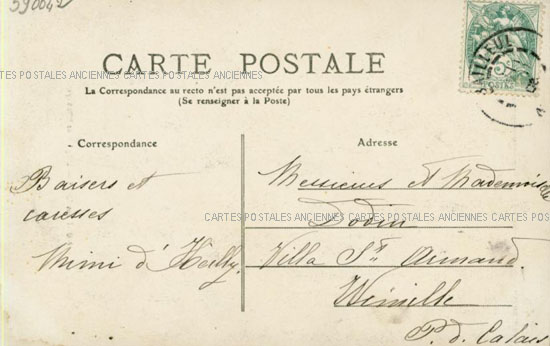 590042
CARTE POSTALE
CARTES POSTALES ANCIENNES CARTES POSTALES ANCIENNES CARTES POSTALES ANCIENNES CARTES POSTALES ANCIENNES
La Correspondance au recto n'est pas acceptée par tous les pays étrangers
(Se renseigner à la Poste)
- Correspondance
Baisers et
caresses
Mimi d'Heilly
Adresse
Messieurs et Mademoiselle
CARTES POSTALES ANCIENNES CARTES POSTALES ANCIENNES CARTES POST
Dodin
Villa St Armand
Wimille
P. d. Calais
BAILLEUL
POSTES